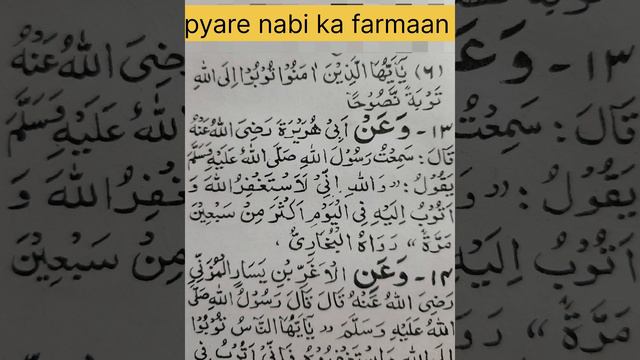 pyare nabi ka farmaan
(٦) يٰۤاَيُّهَا الَّذِيْنَ اٰمَنُوْا تُوْبُوْۤا اِلَى اللهِ
تَوْبَةً نَّصُوْحًا
١٣ - وَعَنْ اَبِيْ هُرَيْرَةَ رَضِيَ اللهُ عَنْهُ
قَالَ: سَمِعْتُ رَسُوْلَ اللهِ صَلَّى اللهُ عَلَيْهِ وَسَلَّمَ
يَقُوْلُ: "وَاللهِ اِنِّيْ لَاَسْتَغْفِرُ اللهَ وَ
اَتُوْبُ اِلَيْهِ فِي الْيَوْمِ اَكْثَرَ مِنْ سَبْعِيْنَ
مَرَّةً" رَوَاهُ الْبُخَارِيُّ.
١٤ - وَعَنِ الْاَغَرِّ بْنِ يَسَارِ الْمُزَنِيِّ
رَضِيَ اللهُ عَنْهُ قَالَ قَالَ رَسُوْلُ اللهِ صَلَّى
اللهُ عَلَيْهِ وَسَلَّمَ "يٰۤاَيُّهَا النَّاسُ تُوْبُوْا
اِلَى اللهِ وَاسْتَغْفِرُوْهُ فَاِنِّيْ اَتُوْبُ فِي